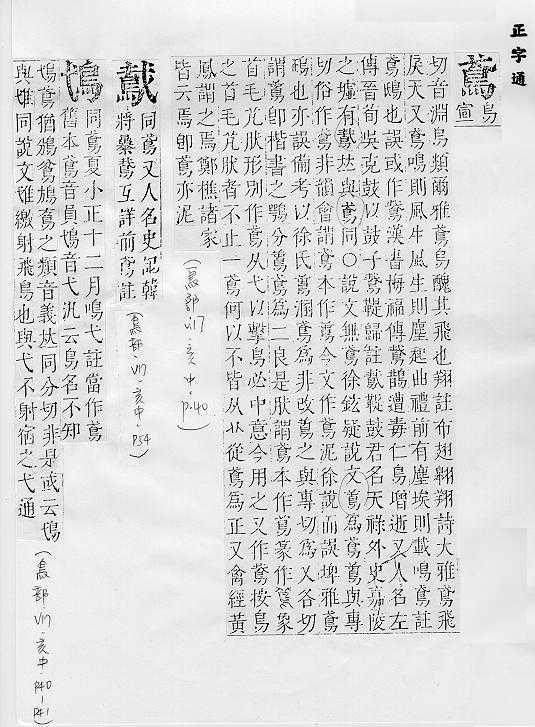 正字通
鳶 烏宣
切音淵鳥類爾雅鳶鳥醜其飛也翔註布翅翱翔詩大雅鳶飛
戾天又鳶鳴則風生風生則塵起曲禮前有塵埃則載鳴鳶註
鳶鴟也誤或作䳒漢書梅福傳䳒鵲遭毒仁鳥增逝又人名左
傳晉荀吳克鼓以鼓子鳶鞮歸註䳒鞮鼓君名天祿外史嘉陵
之墟有䳒𠀤與鳶同○說文無鳶徐鉉疑說文䳒為鳶䳒與專
切俗作鳶非韻會謂鳶本作䳒今文作鳶泥徐說而誤埤雅鳶
鴟也亦誤備考以徐氏䳒溷鳶為非改䳒之與專切為又各切
謂䳒即楷書之鶚分䳒鳶為二良是肰謂鳶本作䳒篆作象
首毛艽肰形別作鳶从弋以擊鳥必中意今用之又作䳒按鳥
之首毛艽肰者不止一鳶何以不皆从从從鳶為正又禽經黃
鳳謂之焉鄭樵諸家
皆云焉卽鳶亦泥
(鳥部·V17·亥中·p.40)
同鳶又人名史記韓
將䳒互詳前鳶註
(鳥部·V17·亥中·P54)
同鳶夏小正十二月鳴弋註當作鳶
舊本鳶音員鳲音弋汎云鳥名不知
鳶猶鴉鴟之類音義𠀤同分切非是或云
與隿同說文隿繳射飛鳥也與弋不射宿之弋通
(鳥部 V17·亥中 P40-P41)